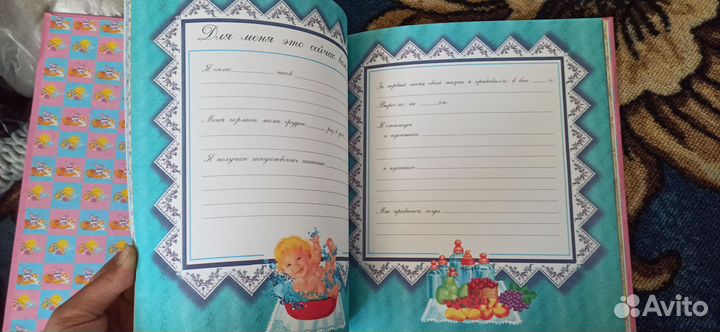 Для меня это сейчас
Я сплю часов
Меня кормят мама грудью раз в
Я получаю искусственное питание
За первый месяц своей жизни я прибавил в весе
Вырос на см
Я
и
и
Мне нравится, когда
Avito